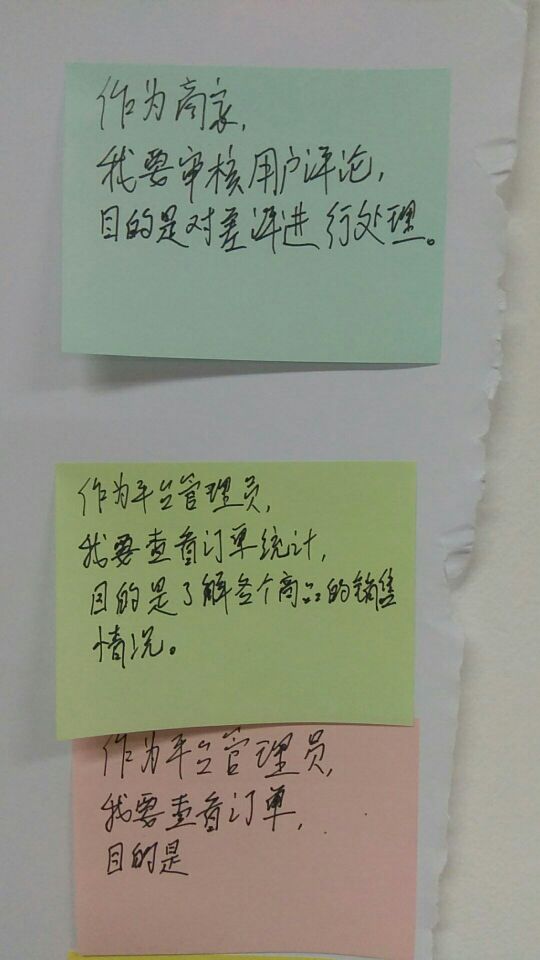 作为商家,
我要审核用户评论,
目的是对差评进行处理。
作为平台管理员,
我要查看订单统计,
目的是了解各个商品的销售
情况。
作为平台管理员,
我要查看订单,
目的是